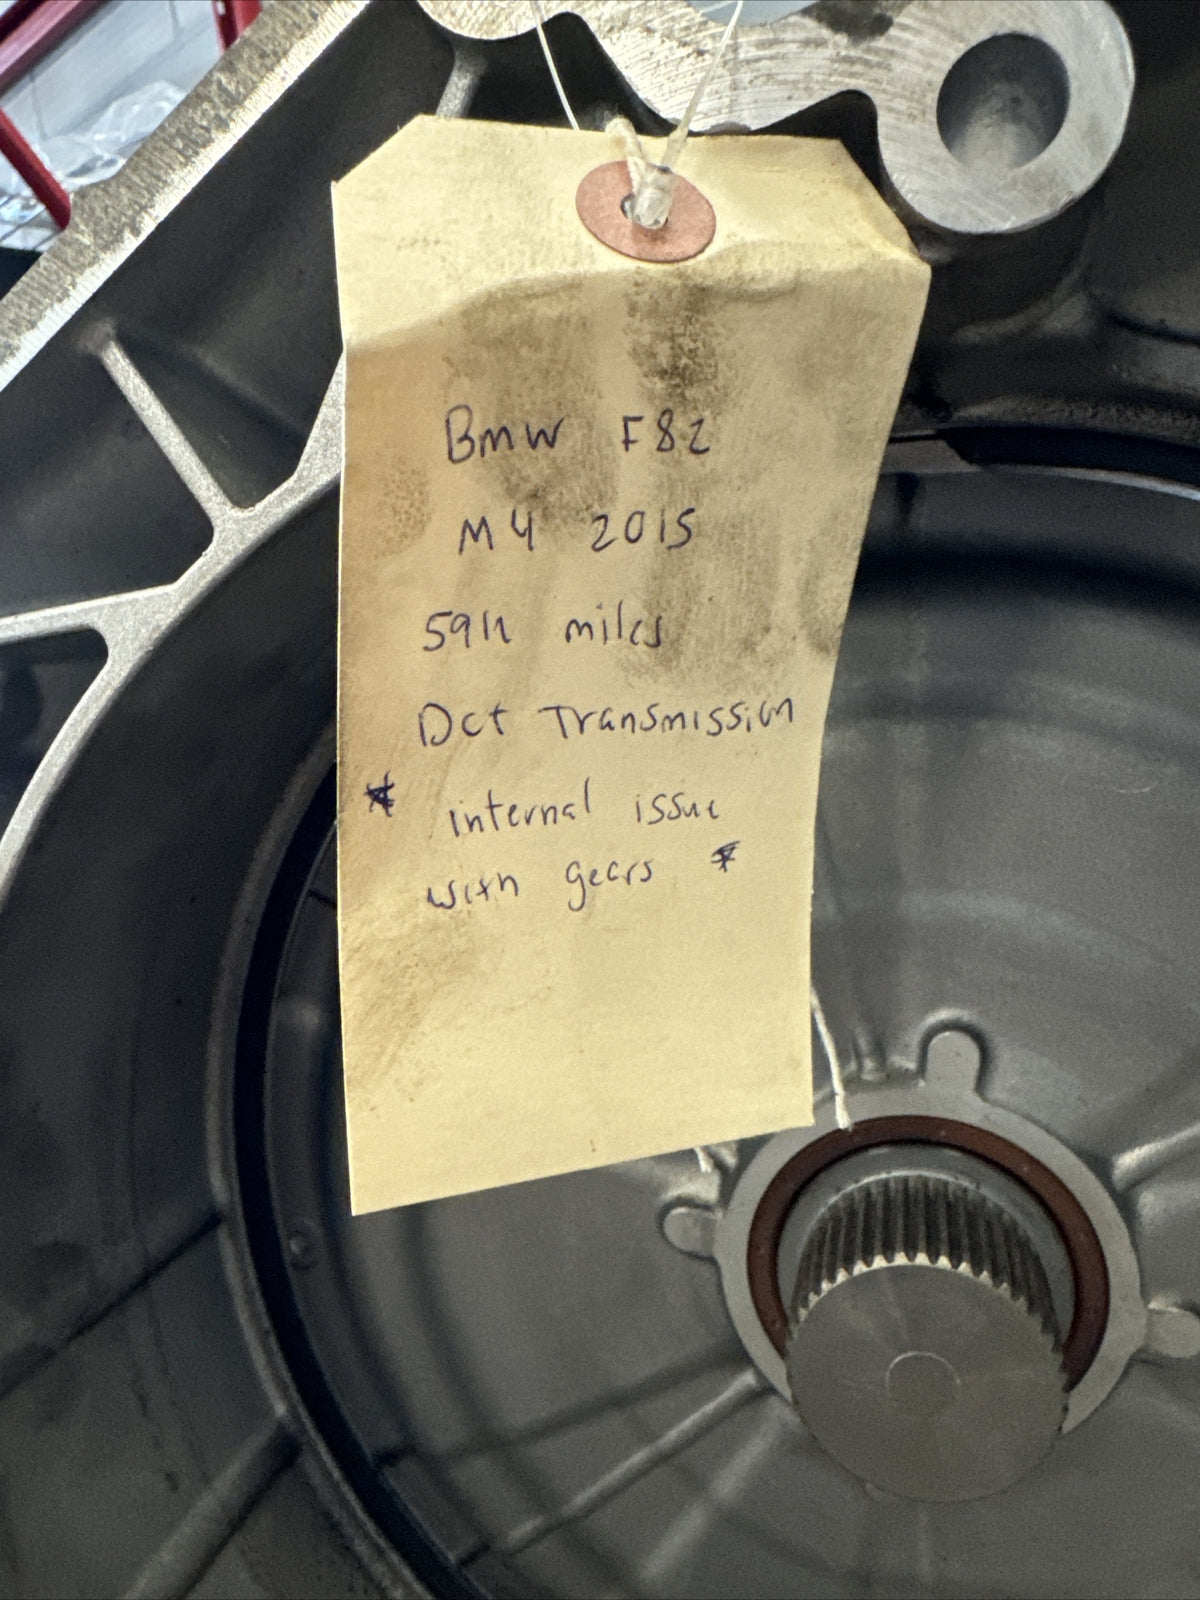 Bmw F82
M4 2015
59k miles
Dct Transmission
* internal issue
with gears *